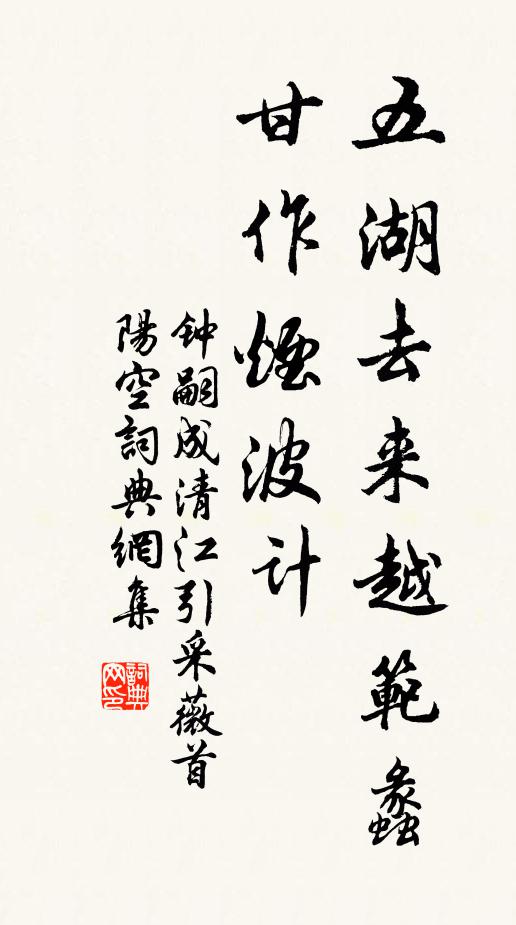 五湖去来越範蠡
甘作煙波计
钟嗣成清江引采薇首
陽空詞典網集
詞典网印